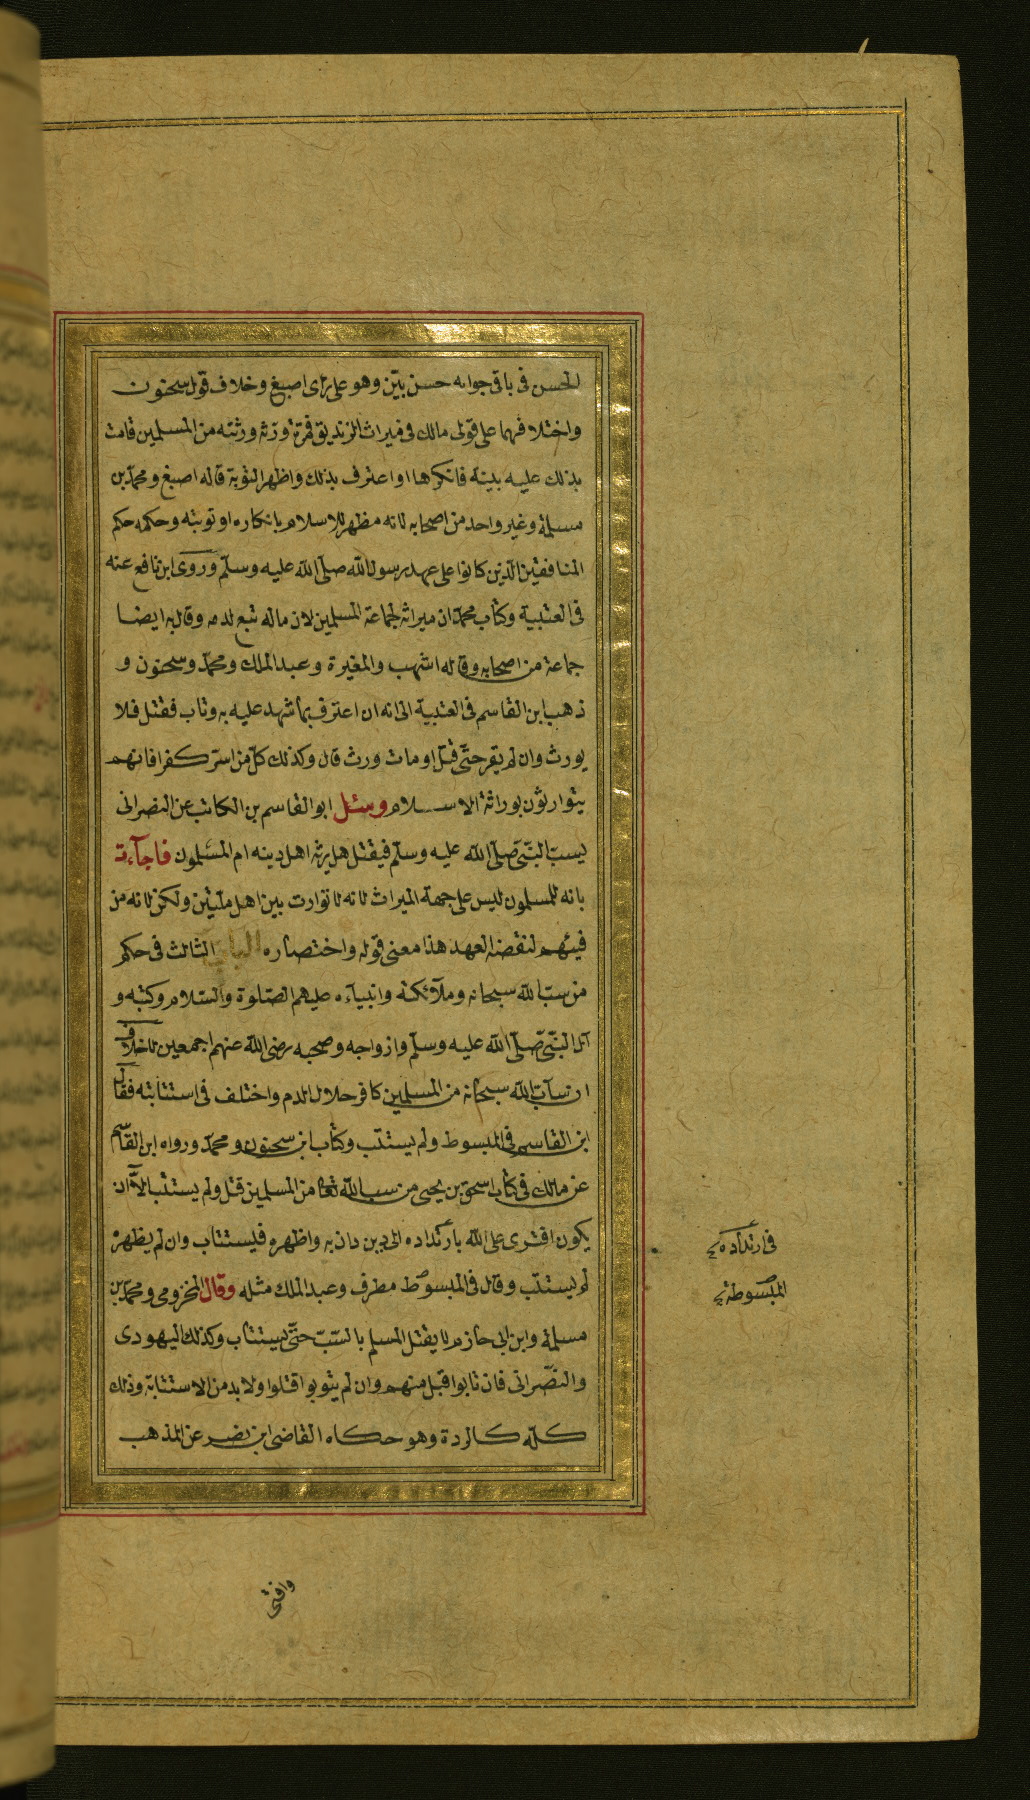 الحسن فى باقى جوابه حسن بيّن وهو على راى اصبغ وخلاف قول سحنون
واختلافهما على قولى مالك فى ميراث الزنديق فمرّة ورّثه ورثته من المسلمين قامت
بذلك عليه بينة فانكرها او اعترف بذلك واظهر التوبة قاله اصبغ ومحمّد بن
مسلمة وغير واحد من اصحابه لانه مظهر للاسلام بانكاره او توبته وحكمه حكم
المنافقين الّذين كانوا على عهد رسول الله صلّى الله عليه وسلّم وروى ابن نافع عنه
فى العتبية وكتاب محمّد ان ميراثه لجماعة المسلمين لان ماله تبع لدمه وقال به ايضا
جماعة من اصحابه وقاله اشهب والمغيرة وعبد الملك ومحمّد وسحنون و
ذهب ابن القاسم فى العتبية الى انه ان اعترف بما شهد عليه به وتاب فقتل فلا
يورث وان لم يقر حتّى قتل او مات ورث قال وكذلك كلّ من اسرّ كفرا فانهم
يتوارثون بوراثة الاسلام وسئل ابو القاسم بن الكاتب عن النصرانى
يسبّ النبّى صلّى الله عليه وسلّم فيقتل هل يرثه اهل دينه ام المسلمون فاجآب
بانه للمسلمون ليس على جهة الميراث لانه لا توارث بين اهل ملّتين ولكن لانه من
فيئهم لنقضه العهد هذا معنى قوله واختصاره الباب الثالث فى حكم
من سبّ الله سبحانه وملآئكته وانبيآءه عليهم الصّلوة والسّلام وكتبه و
آل النبّى صلّى الله عليه وسلّم وازواجه وصحبه رضى الله عنهم اجمعين لاخلاف
ان سآبّ الله سبحانه من المسلمين كافر حلال الدم واختلف فى استتابته فقال
ابن القاسم فى المبسوط ولم يستتب وكتاب ابن سحنون ومحمّد ورواه ابن القاسم
عن مالك فى كتاب اسحق بن يحيى من سبّ الله تعالى من المسلمين قتل ولم يستتب الآّ ان
يكون افترى على الله بارتداده الى دين دان به واظهره فيستتاب وان لم يظهره
لم يستتب وقال فى المبسوط مطرف وعبد الملك مثله وقال المخزومى ومحمّد بن
مسلمة وابن ابى حازم لا يقتل المسلم بالسّبّ حتّى يستتاب وكذلك اليهودى
والنصّرانى فان تابوا قبل منهم وان لم يتوبوا قتلوا ولا بد من الاستتابة وذلك
كلّه كالردة وهو حكاه القاضى ابن نصر عن المذهب
فى ارتداده
المبسوطة
وافتى